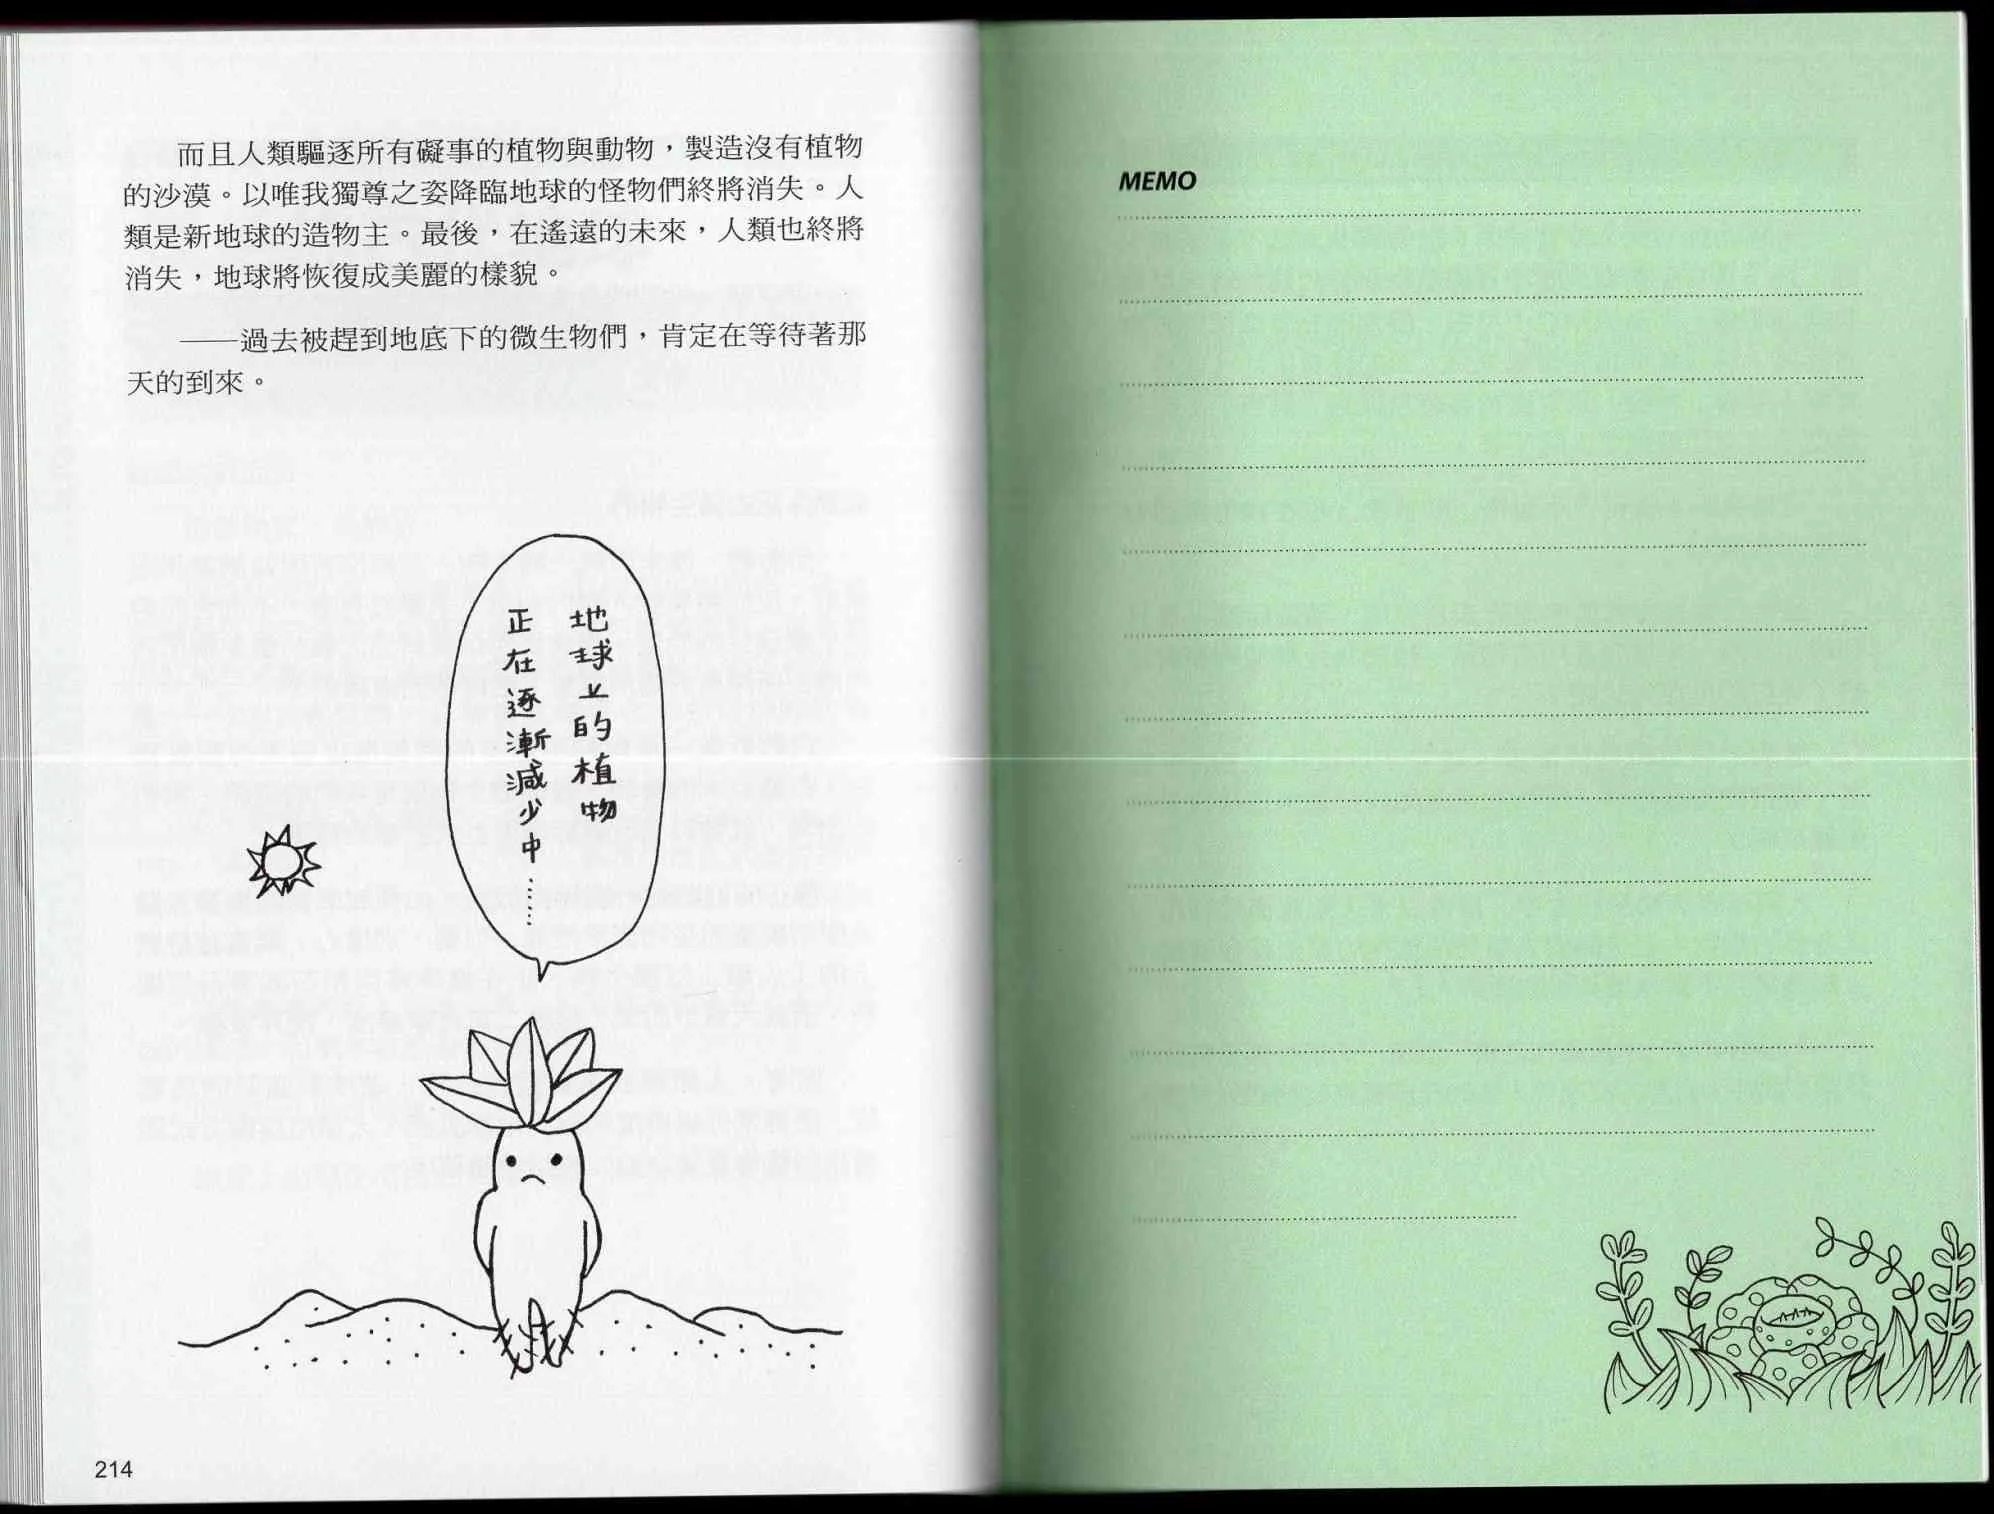 而且人類驅逐所有礙事的植物與動物，製造沒有植物
的沙漠。以唯我獨尊之姿降臨地球的怪物們終將消失。人
類是新地球的造物主。最後，在遙遠的未來，人類也終將
消失，地球將恢復成美麗的樣貌。
——過去被趕到地底下的微生物們，肯定在等待著那
天的到來。
地球上的植物
正在逐漸減少中……
214
MEMO